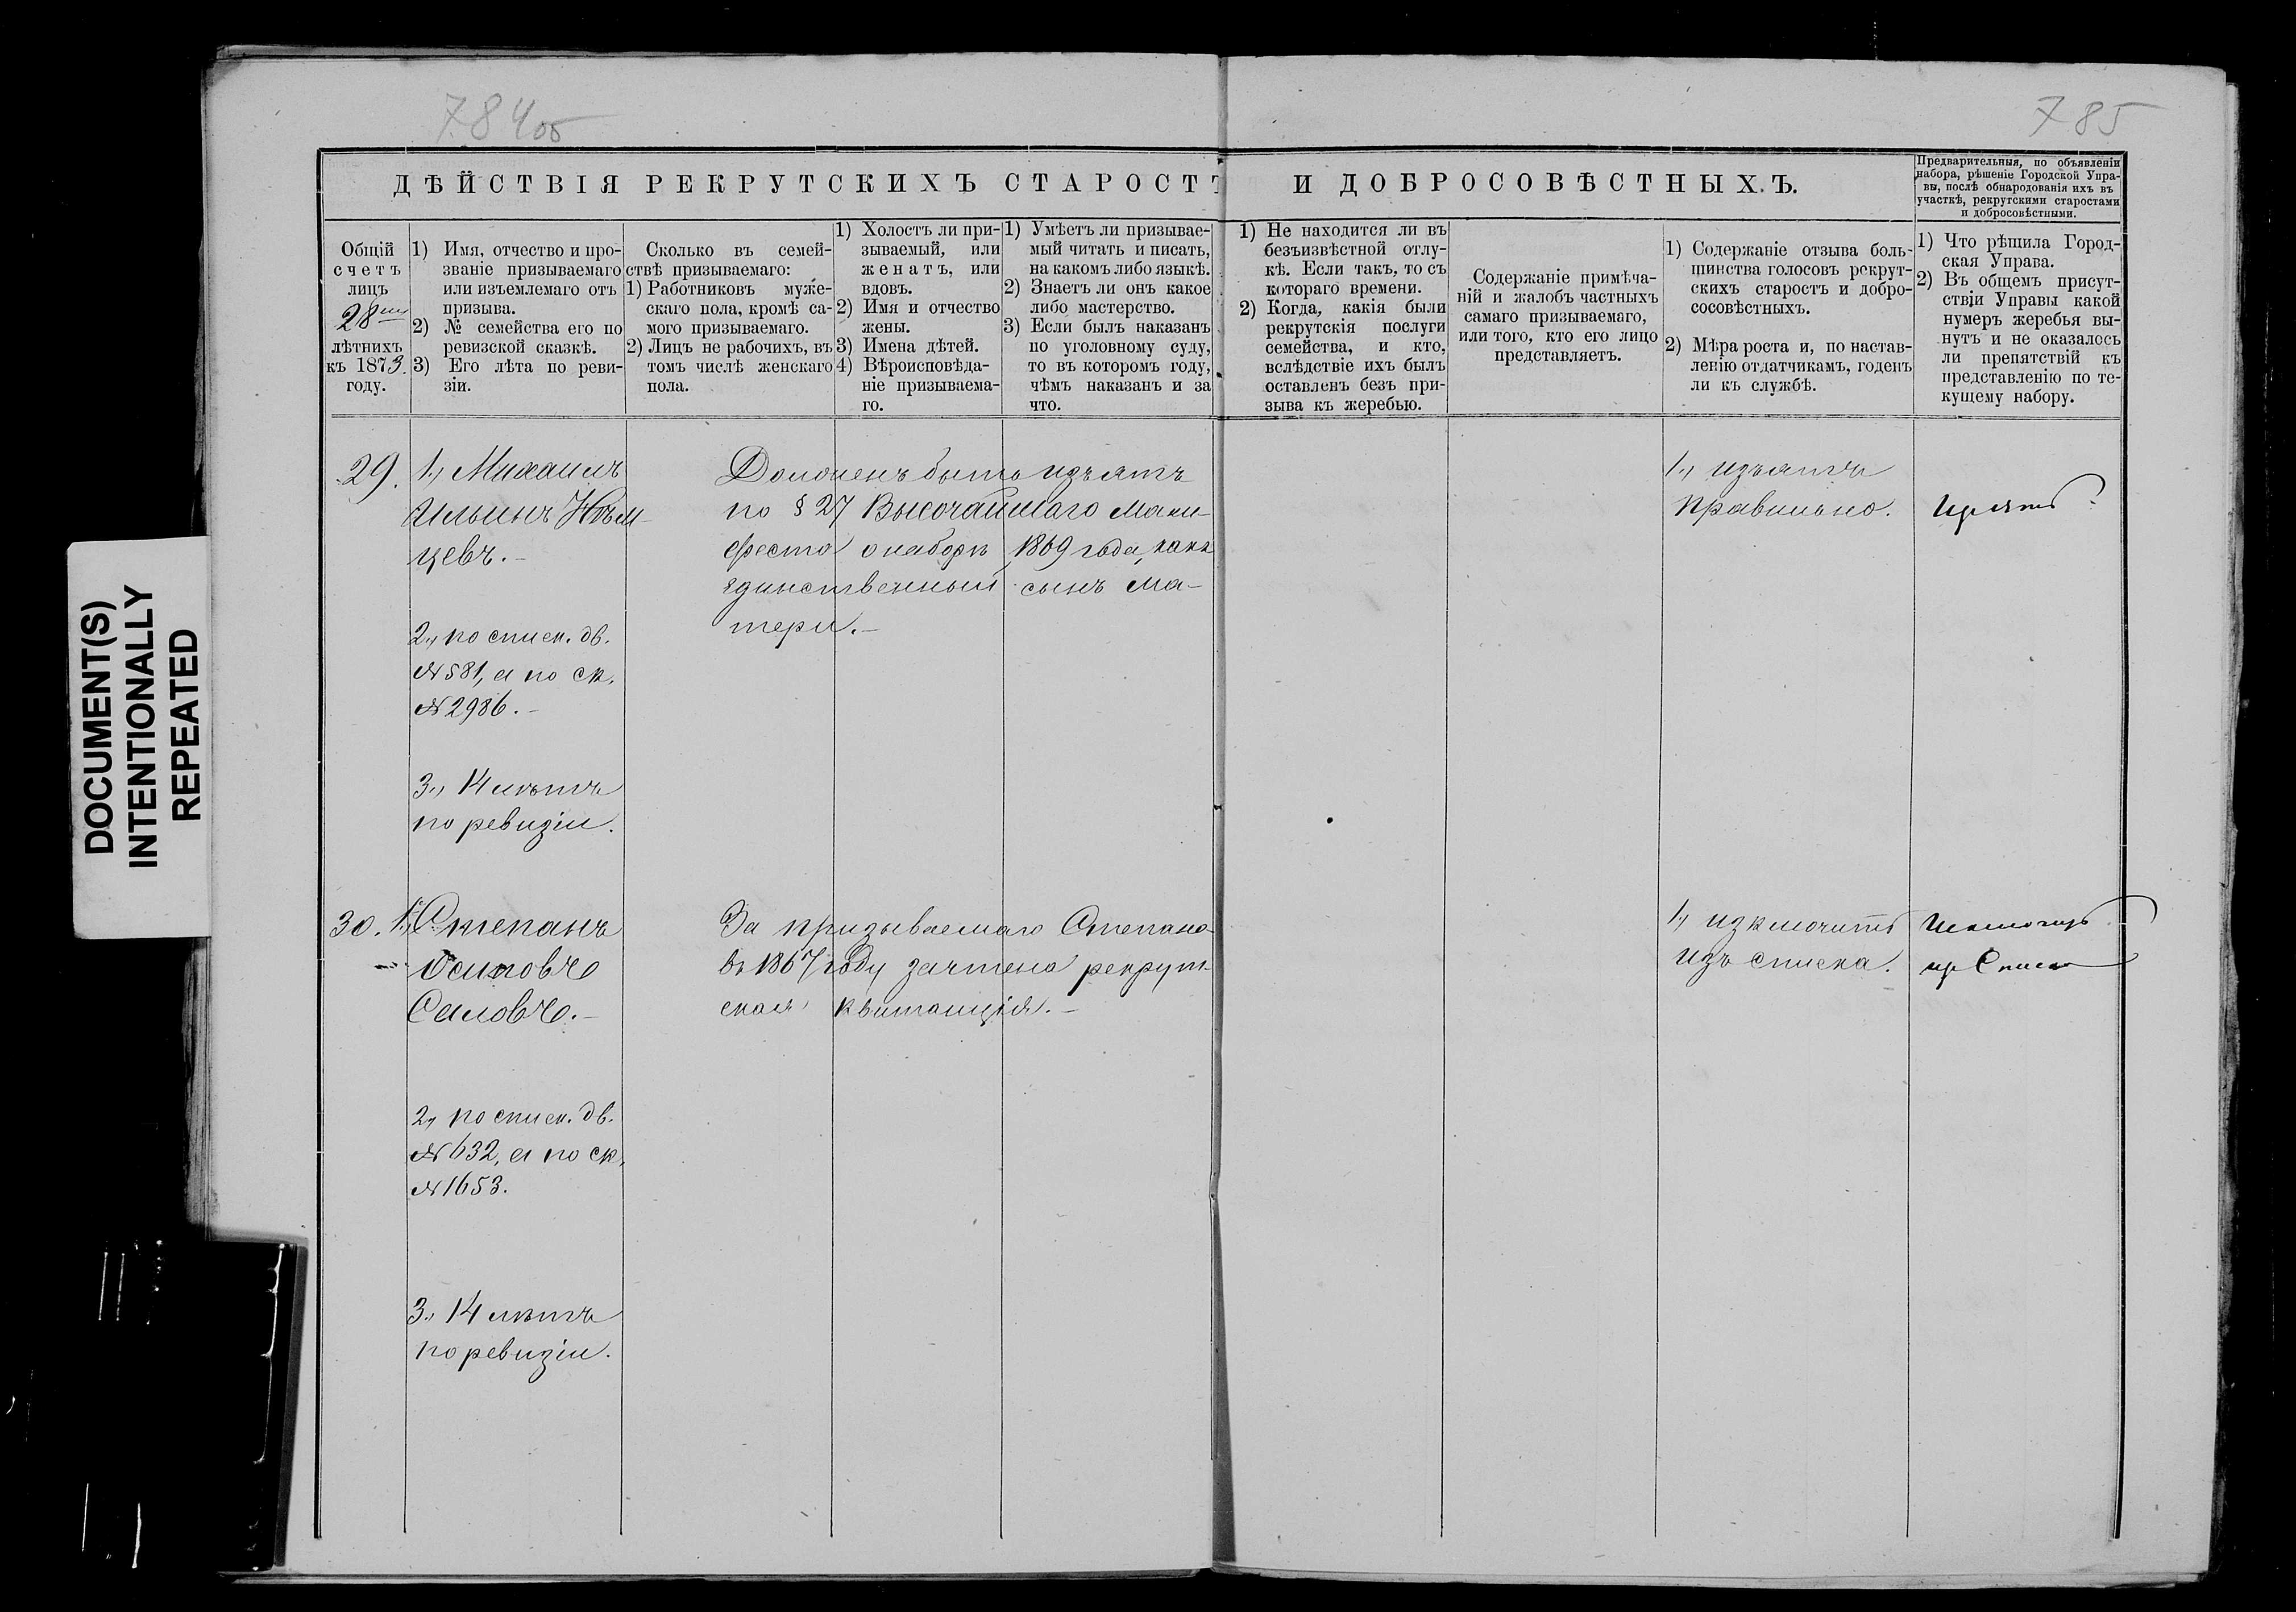 784об
785
DOCUMENT(S)
INTENTIONALLY
REPEATED
ДѢЙСТВІЯ РЕКРУТСКИХЪ СТАРОСТЪ И ДОБРОСОВѢСТНЫХЪ.
Предварительныя, по объявленіи
набора, рѣшеніе Городской Упра-
вы, послѣ обнародованія ихъ въ
участкѣ, рекрутскими старостами
и добросовѣстными.
Общій
счетъ
лицъ
28ми
лѣтнихъ
къ 1873.
году.
1) Имя, отчество и про-
званіе призываемаго
или изъемлемаго отъ
призыва.
2) № семейства его по
ревизской сказкѣ.
3) Его лѣта по реви-
зіи.
Сколько въ семей-
ствѣ призываемаго:
1) Работниковъ муже-
скаго пола, кромѣ са-
мого призываемаго.
2) Лицъ не рабочихъ, въ
томъ числѣ женскаго
пола.
1) Холостъ ли при-
зываемый, или
женатъ, или
вдовъ.
2) Имя и отчество
жены.
3) Имена дѣтей.
4) Вѣроисповѣда-
ніе призываема-
го.
1) Умѣетъ ли призывае-
мый читать и писать,
на какомъ либо языкѣ.
2) Знаетъ ли онъ какое
либо мастерство.
3) Если былъ наказанъ
по уголовному суду,
то въ которомъ году,
чѣмъ наказанъ и за
что.
1) Не находится ли въ
безъизвѣстной отлу-
кѣ. Если такъ, то съ
котораго времени.
2) Когда, какія были
рекрутскія послуги
семейства, и кто,
вслѣдствіе ихъ былъ
оставленъ безъ при-
зыва къ жеребью.
Содержаніе примѣча-
ній и жалобъ частныхъ
самаго призываемаго,
или того, кто его лицо
представляетъ.
1) Содержаніе отзыва боль-
шинства голосовъ рекрут-
скихъ старостъ и добро-
сосовѣстныхъ.
2) Мѣра роста и, по настав-
ленію отдатчикамъ, годенъ
ли къ службѣ.
1) Что рѣшила Город-
ская Управа.
2) Въ общемъ присут-
ствіи Управы какой
нумеръ жеребья вы-
нутъ и не оказалось
ли препятствій къ
представленію по те-
кущему набору.
29.
1., Михаилъ
Ильинъ Нѣм-
цевъ.-
2., по списк. дв.
№ 581, а по ск.
№ 2986.-
3., 14 лѣтъ
по ревизіи.
Долженъ быть изъятъ
по § 27 Высочайшаго Мани-
феста о наборѣ 1869 года, какъ
единственный сынъ ма-
тери.-
1., изъятъ
правильно.
Изъять
30.
1., Степанъ
Осиповъ
Саловъ.-
2., по списк. дв.
№ 632, а по ск.
№ 1653.
3., 14 лѣтъ
по ревизіи.
За призываемаго Степана
въ 1867 году зачтена рекрут-
ская квитанція.-
1., изключить
изъ списка.
Исключить
из Списка